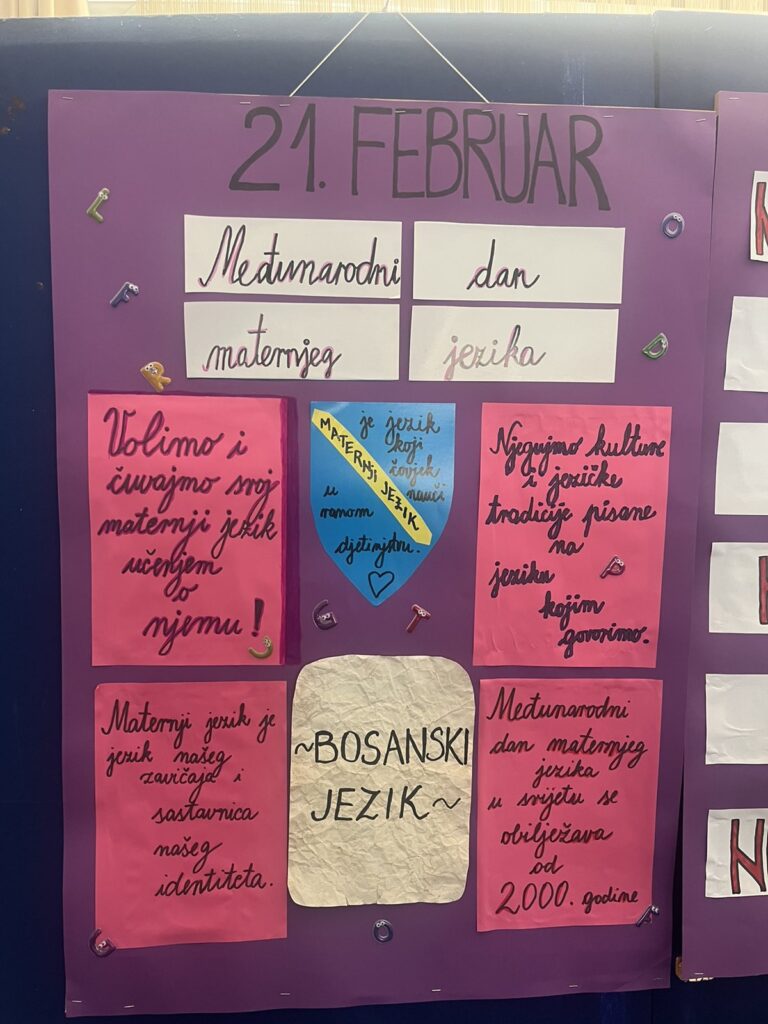 21. FEBRUAR
Međunarodni dan
maternjeg jezika
Volimo i
čuvajmo svoj
maternji jezik
učenjem
o
njemu!
MATERNJI JEZIK
je jezik
koji
čovjek
nauči
u
ranom
djetinjstvu.
Njegujmo kulture
i jezičke
tradicije pisane
na
jeziku
kojim
govorimo.
Maternji jezik je
jezik našeg
zavičaja i
sastavnica
našeg
identiteta.
~BOSANSKI
JEZIK~
Međunarodni
dan maternjeg
jezika
u svijetu se
obilježava
od
2000. godine